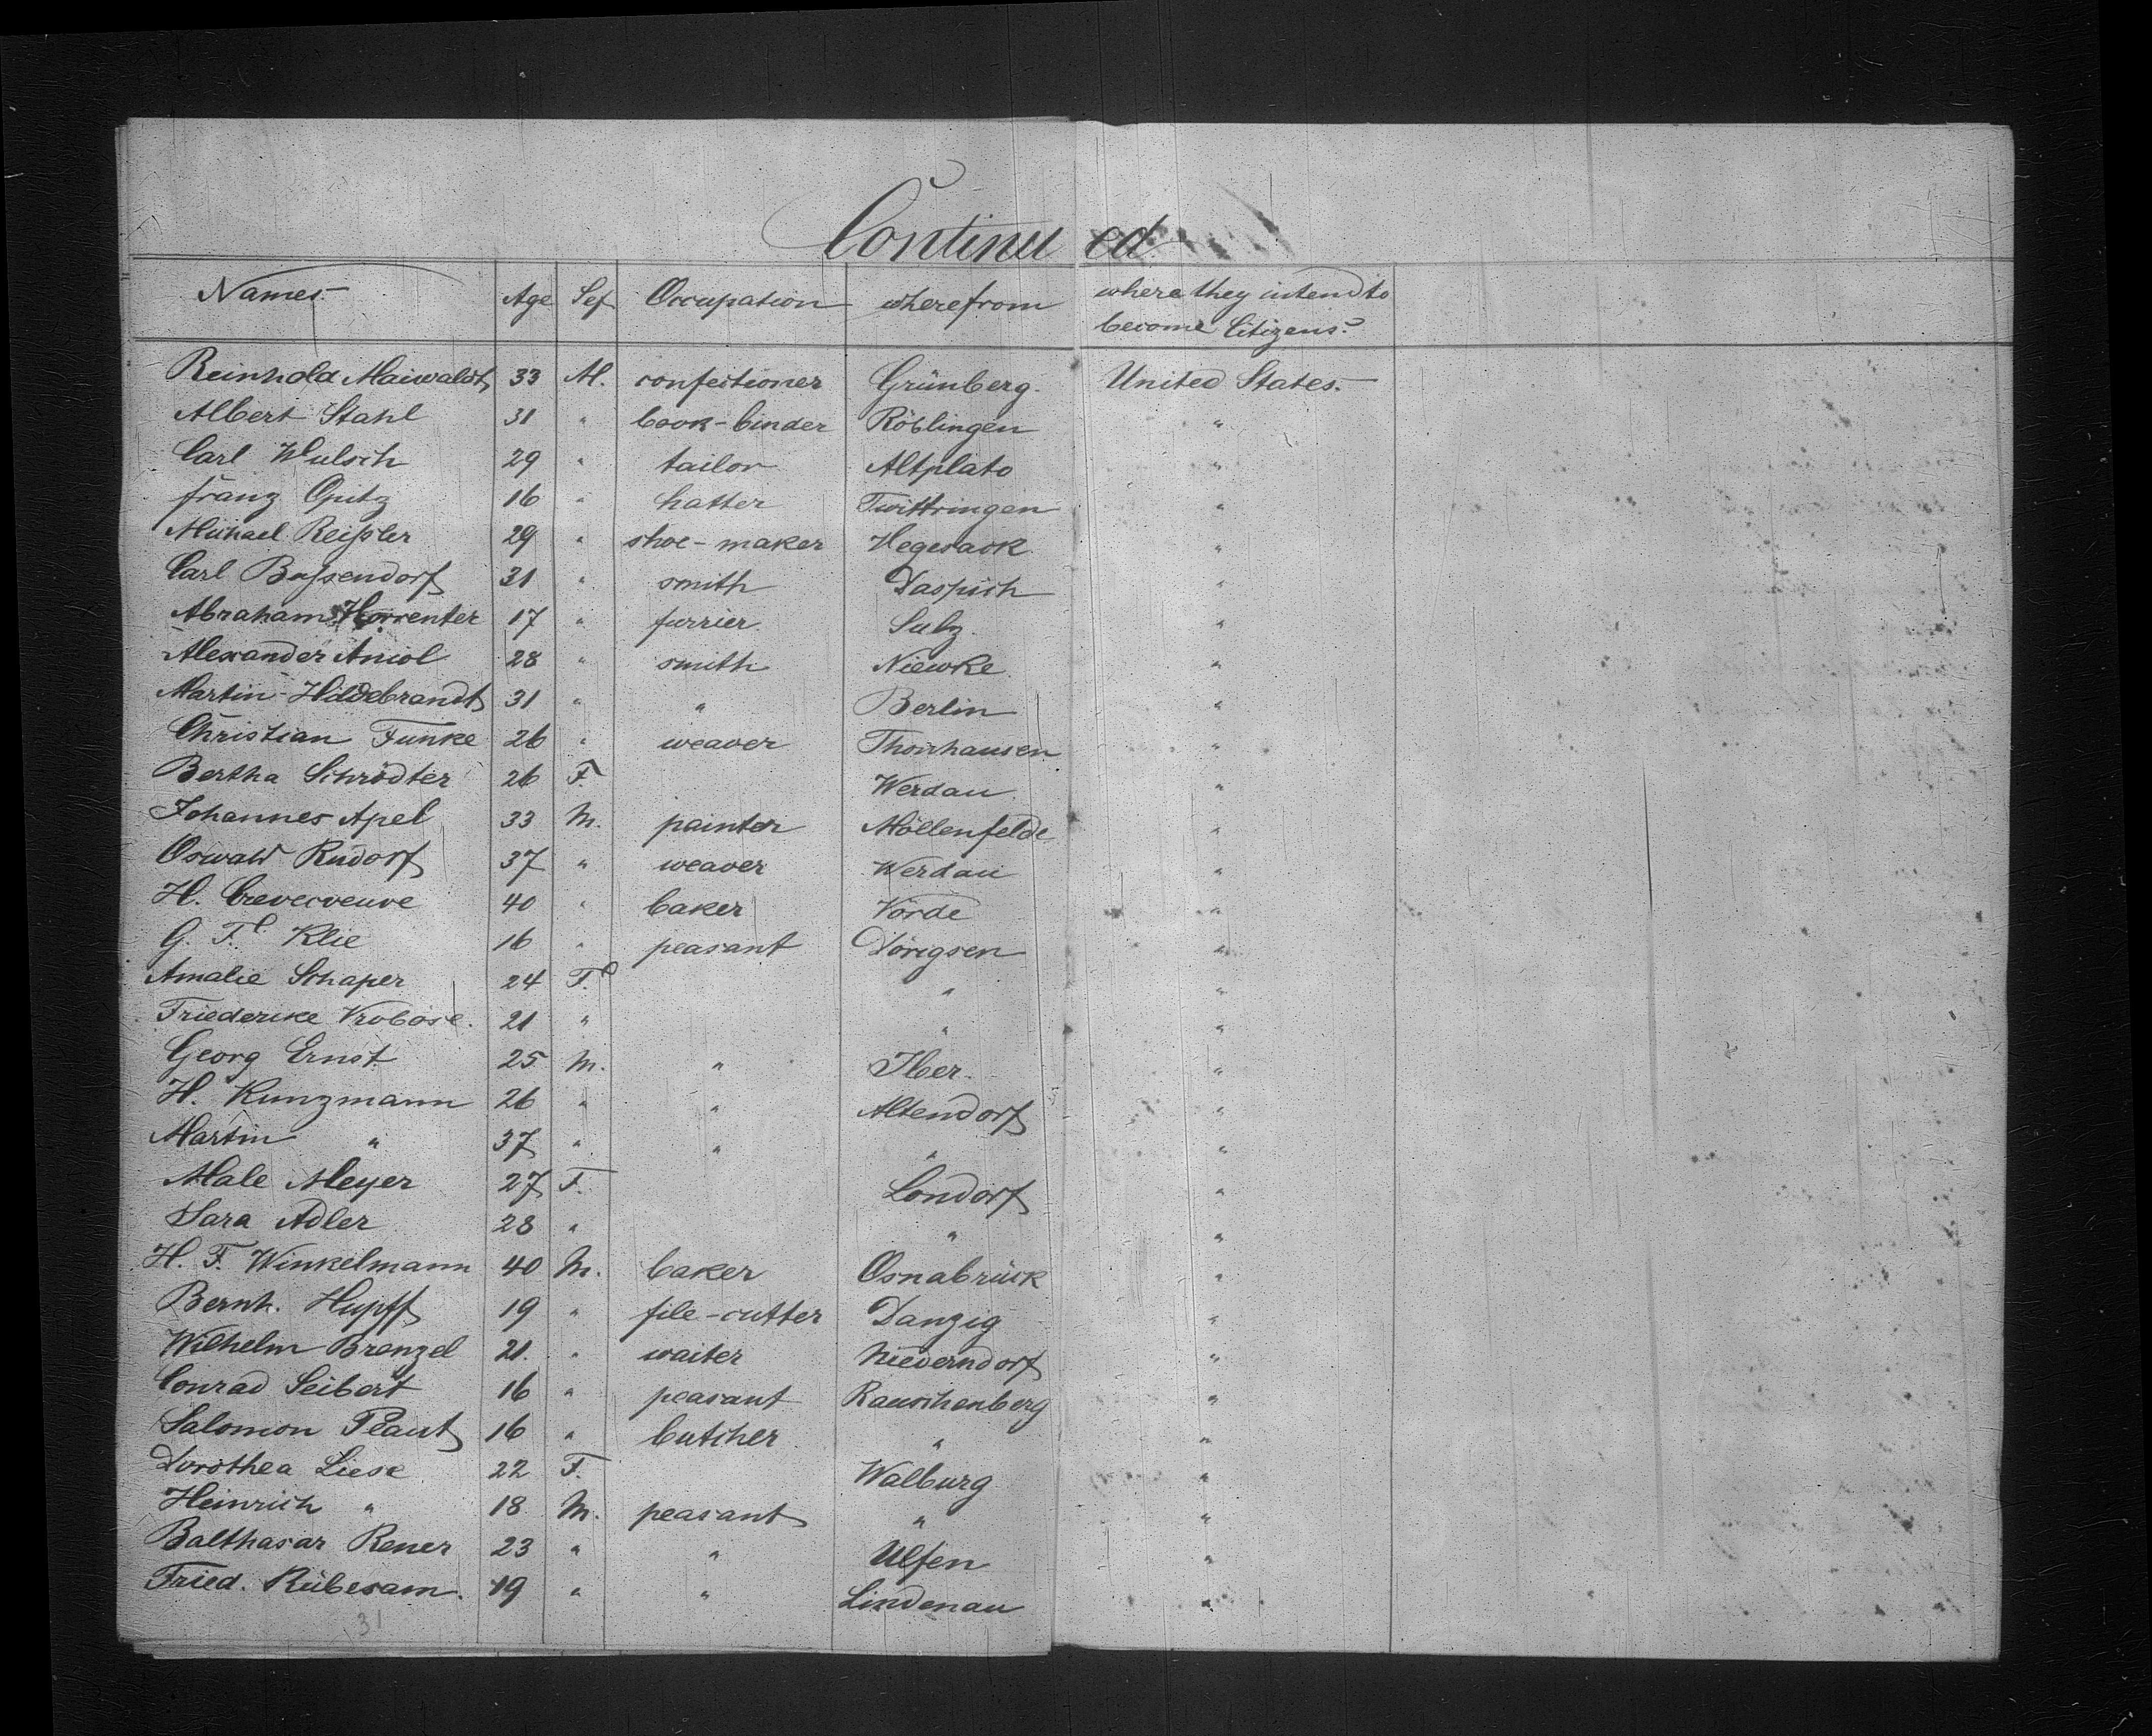 Continued
Names. Age Sex Occupation where from where they intend to
become Citizens?
Reinhold Maiwaldt 33 M. confectioner Grünberg. United States.
Albert Stahl 31 " book-binder Röblingen "
Carl Wulsch 29 " tailor Altplato "
Franz Opitz 16 " hatter Twittringen "
Michael Reißler 29 " shoe-maker Vegesack "
Carl Bußendorf 31 " smith Daspich "
Abraham 17 " furrier. Sulz. "
Alexander Aniol 28 " smith Niewke. "
Martin Hildebrandt 31 " " Berlin "
Christian Funke 26 " weaver Thonhausen "
Bertha Schrödter 26 F. Werdau "
Johannes Apel 33 M. painter Möllenfelde "
Oswald Rudorf 37 " weaver Werdau "
H. Crevecoeuve 40 " baker Vörde "
G. F. Klie 16 " peasant Dörigsen "
Amalie Schaper 24 F. " "
Friederike Vrobose. 21 " " "
Georg Ernst 25 M. " Iber. "
H. Kunzmann 26 " " Altendorf "
Martin " 37 " " " "
Male Meyer 27 F. Londorf "
Sara Adler 28 " " "
H. F. Winkelmann 40 M. baker Osnabrück "
Bernh. Hupff 19 " file-cutter Danzig "
Wilhelm Brenzel 21. " waiter Niederndorf "
Conrad Seibert 16 " peasant Rauschenberg "
Salomon Plaut 16 " butcher " "
Dorothea Liese 22 F. Walburg "
Heinrich " 18 M. peasant " "
Balthasar Rener 23 " " Ulfen "
Fried. Rübesam. 19 " " Lindenau "
31